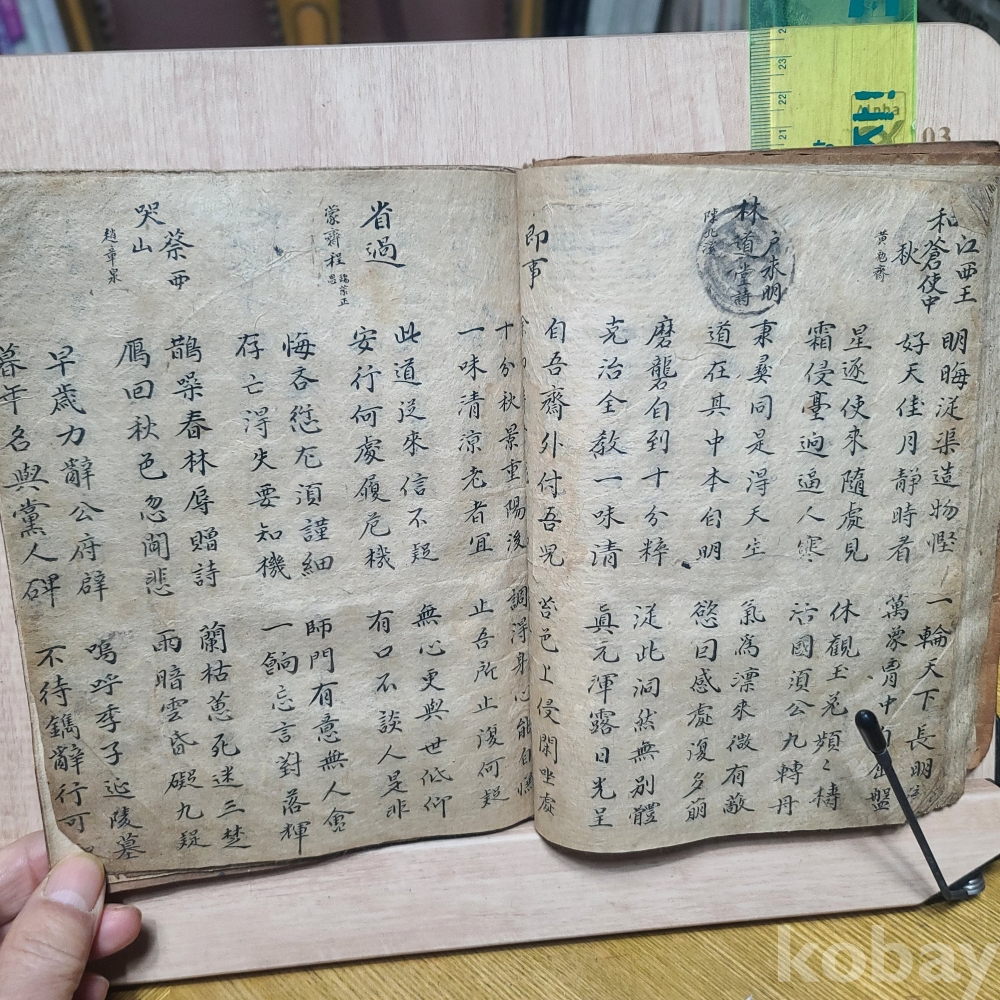 和江西王蒼使中秋
黃勉齋
明晦從渠造物慳 一輪天下長明
好天佳月靜時看 萬象胷中 盤
星逐使來隨處見 休觀玉 頻〻檮
霜侵臺逈逼人寒 活國須公九轉丹
林戶求明道堂詩
陳北溪
秉彛同是得天生 氣爲漂來微有敵
道在其中本自明 慾因感處復多萠
磨礲自到十分粹 從此洞然無別體
克治全教一味清 眞元渾露日光呈
即事
自吾齋外付吾兒 苔邑上侵閑坐處
十分秋景重陽後 調得身心能自
一味清凉老者宜 止吾所止復何疑
省過
蒙齋程端蒙正思
此道從來信不疑 無心更與世低仰
安行何處履危機 有口不談人是非
悔吝愆尤須謹細 師門有意無人會
存亡得失要知機 一餉忘言對落輝
哭蔡西山
趙章泉
鵲噪春林辱贈詩 蘭枯蕙死迷三楚
鴈回秋色忽聞悲 雨暗雲昏礙九疑
早歲力辭公府辟 嗚呼季子延陵墓
暮年名與黨人碑 不待鐫辭行可
kobay